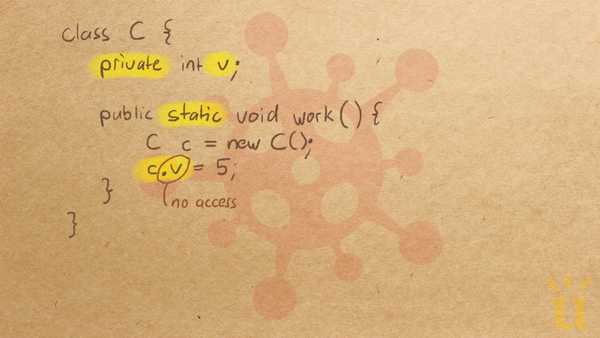 class C {
private int v;
public static void work() {
C c = new C();
c.v = 5;
no access
}
}